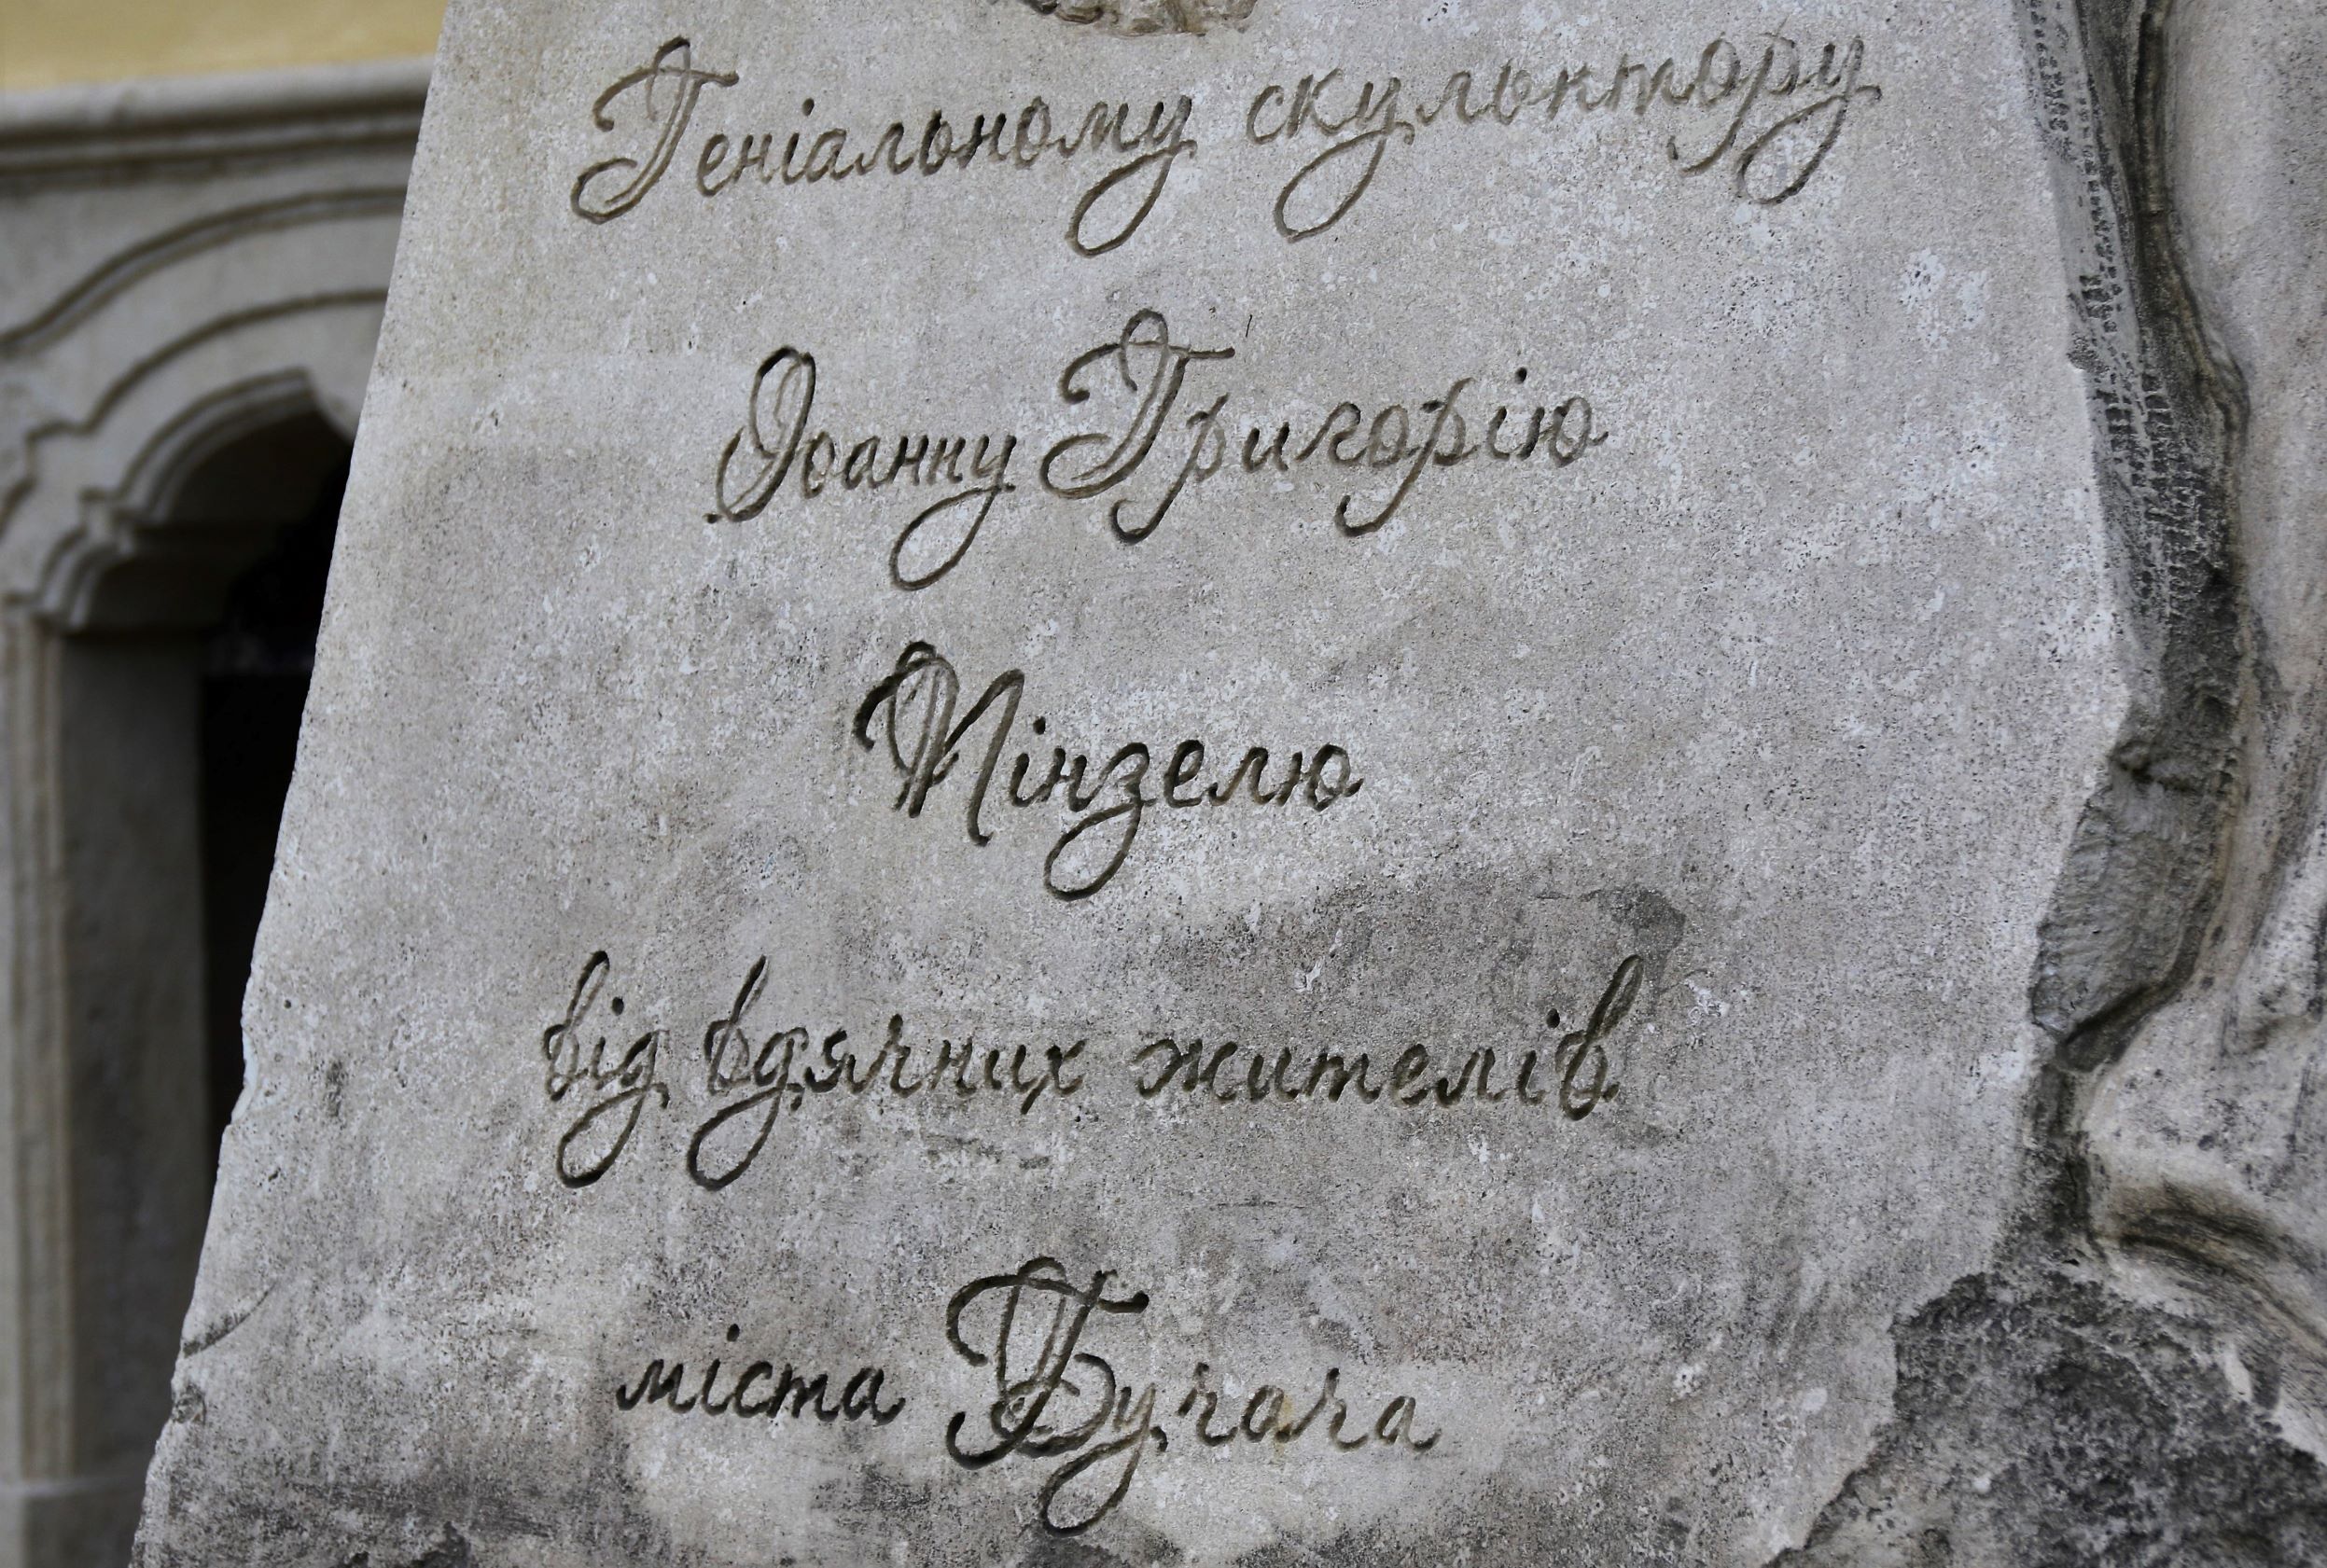 Геніальному скульптору
Іоанну Григорію
Пінзелю
від вдячних жителів
міста Бучача